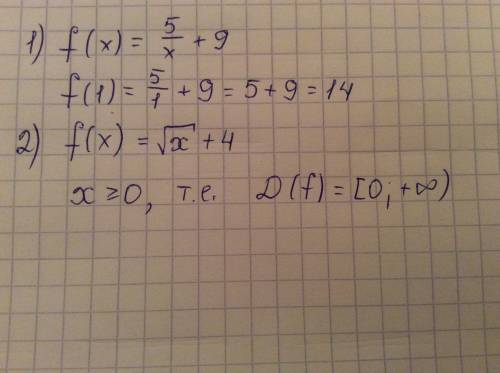 1) f(x) = 5/x + 9
f(1) = 5/1 + 9 = 5 + 9 = 14
2) f(x) = √x + 4
x ≥ 0, т.е. D(f) = [0; +∞)